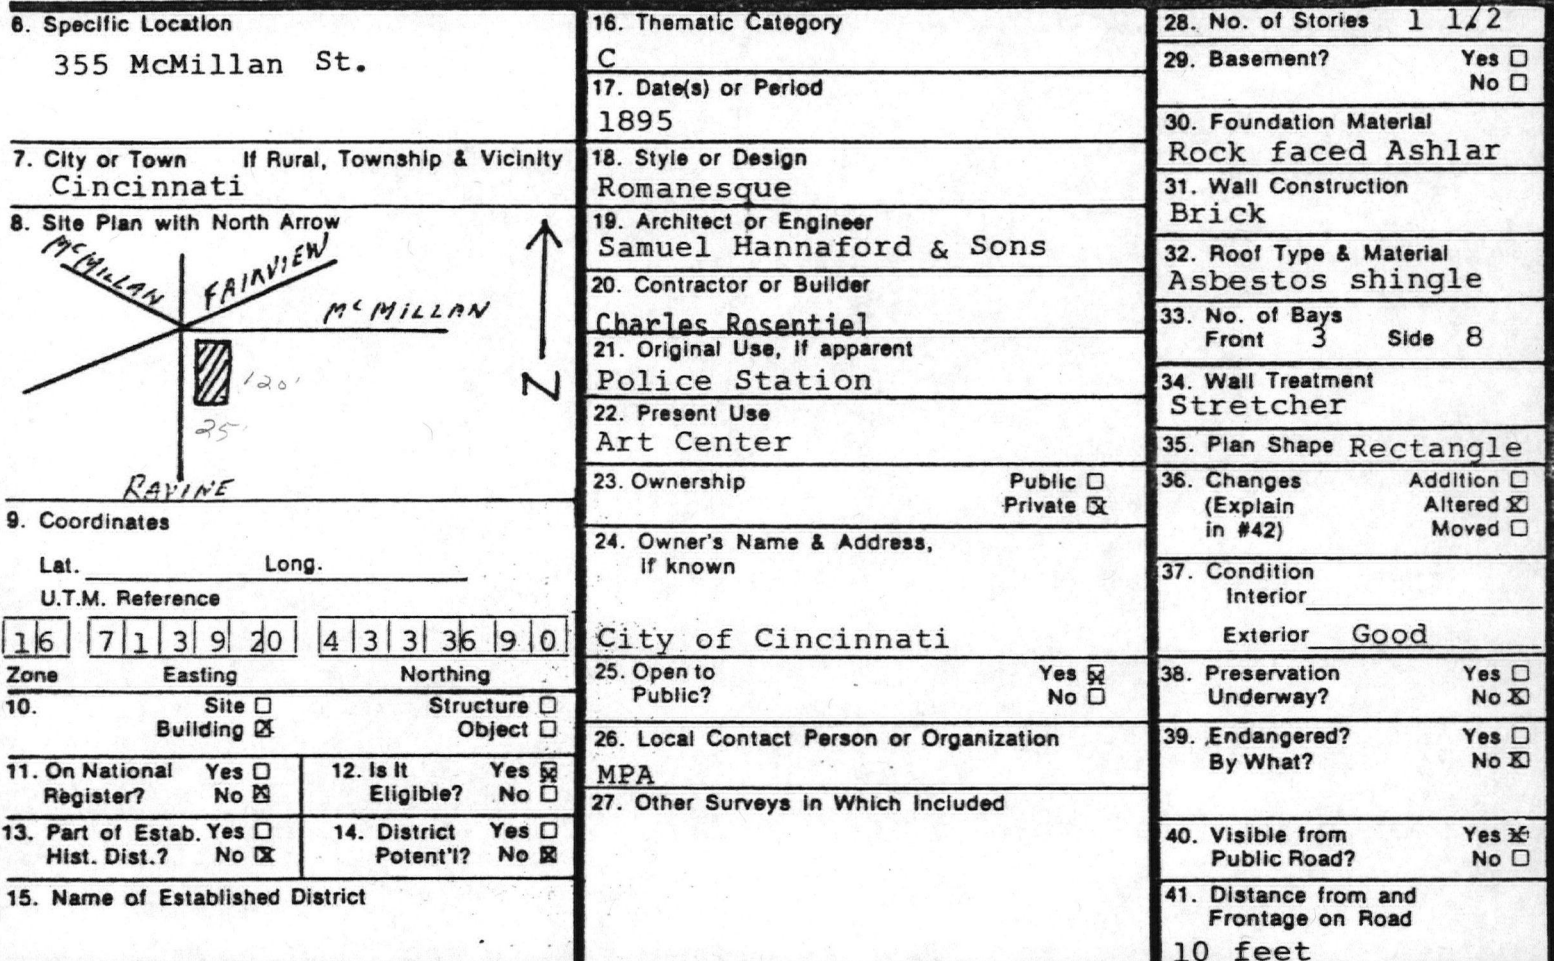 6. Specific Location
355 McMillan St.
7. City or Town If Rural, Township & Vicinity
Cincinnati
8. Site Plan with North Arrow
McMILLAN
FAIRVIEW
McMILLAN
120'
25'
RAVINE
N
9. Coordinates
Lat. Long.
U.T.M. Reference
16 713920 4333690
Zone Easting Northing
10. Site ☐ Structure ☐
Building ☒ Object ☐
11. On National Yes ☐
Register? No ☒
12. Is It Yes ☒
Eligible? No ☐
13. Part of Estab. Yes ☐
Hist. Dist.? No ☒
14. District Yes ☐
Potent'l? No ☒
15. Name of Established District
16. Thematic Category
C
17. Date(s) or Period
1895
18. Style or Design
Romanesque
19. Architect or Engineer
Samuel Hannaford & Sons
20. Contractor or Builder
Charles Rosentiel
21. Original Use, if apparent
Police Station
22. Present Use
Art Center
23. Ownership Public ☐
Private ☒
24. Owner's Name & Address,
if known
City of Cincinnati
25. Open to Yes ☒
Public? No ☐
26. Local Contact Person or Organization
MPA
27. Other Surveys in Which Included
28. No. of Stories 1 1/2
29. Basement? Yes ☐
No ☐
30. Foundation Material
Rock faced Ashlar
31. Wall Construction
Brick
32. Roof Type & Material
Asbestos shingle
33. No. of Bays
Front 3 Side 8
34. Wall Treatment
Stretcher
35. Plan Shape Rectangle
36. Changes Addition ☐
(Explain Altered ☒
in #42) Moved ☐
37. Condition
Interior
Exterior Good
38. Preservation Yes ☐
Underway? No ☒
39. Endangered? Yes ☐
By What? No ☒
40. Visible from Yes ☒
Public Road? No ☐
41. Distance from and
Frontage on Road
10 feet